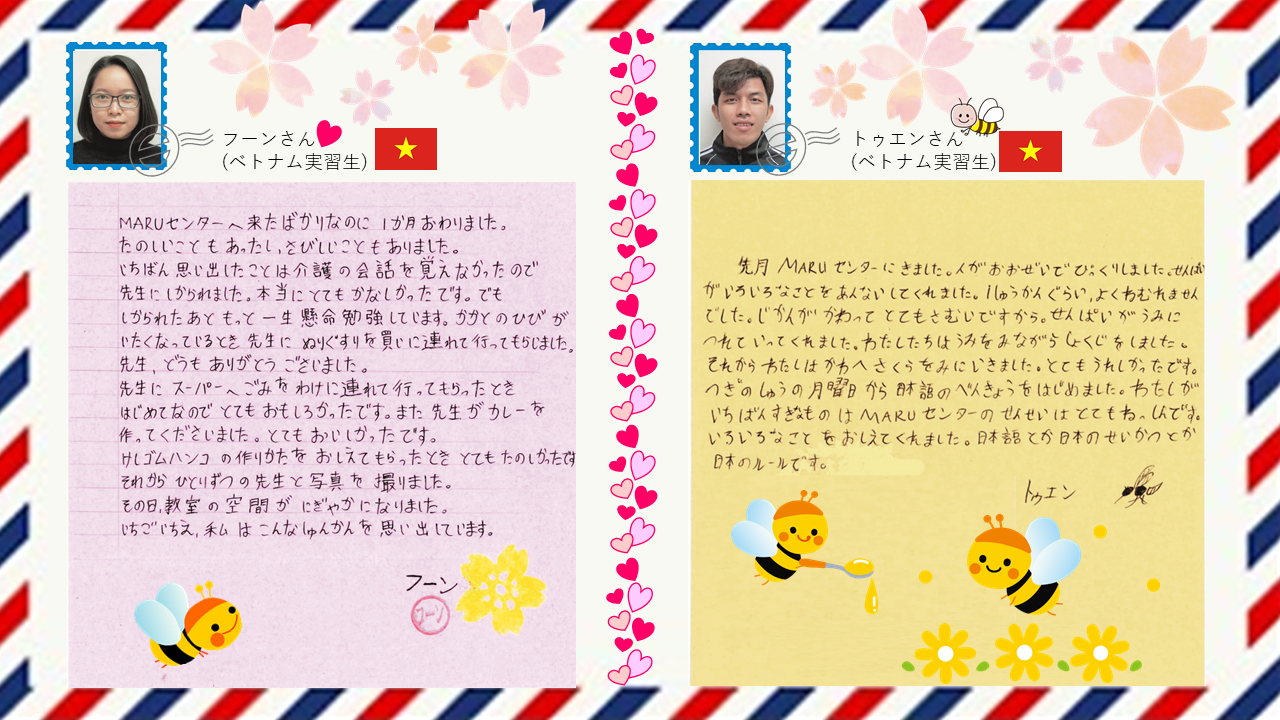 フーンさん
(ベトナム実習生)
MARUセンターへ来たばかりなのに 1か月おわりました。
たのしいこともあったし、さびしいこともありました。
いちばん思い出したことは介護の会話を覚えなかったので
先生にしかられました。本当にとてもかなしかったです。でも
しかられたあともっと一生懸命勉強しています。かかとのひびが
いたくなっているとき先生に ぬりぐすりを買いに連れて行ってもらいました。
先生、どうもありがとうございました。
先生にスーパーへごみをわけに連れて行ってもらったとき
はじめてなのでとてもおもしろかったです。また先生がカレーを
作ってくださいました。とてもおいしかったです。
けしゴムハンコの作りかたをおしえてもらったときとてもたのしかったです
それからひとりずつの先生と写真を撮りました。
その日、教室の空間がにぎやかになりました。
いちごいちえ、私はこんなしゅんかんを思い出しています。
フーン
フーン
トゥエンさん
(ベトナム実習生)
先月MARUセンターにきました。人がおおぜいでびっくりしました。せんぱい
がいろいろなことをあんないしてくれました。1しゅうかんぐらい、よくねむれません
でした。じかんがかわってとてもさむいですから。せんぱいがうみに
つれていってくれました。わたしたちはうみをみながらしょくじをしました。
それからわたしはかわへさくらをみにいきました。とてもうれしかったです。
つぎのしゅうの月曜日から日本語のべんきょうをはじめました。わたしが
いちばんすきなものはMARUセンターのせんせいはとてもねっしんです。
いろいろなことをおしえてくれました。日本語とか日本のせいかつとか
日本のルールです。
トゥエン